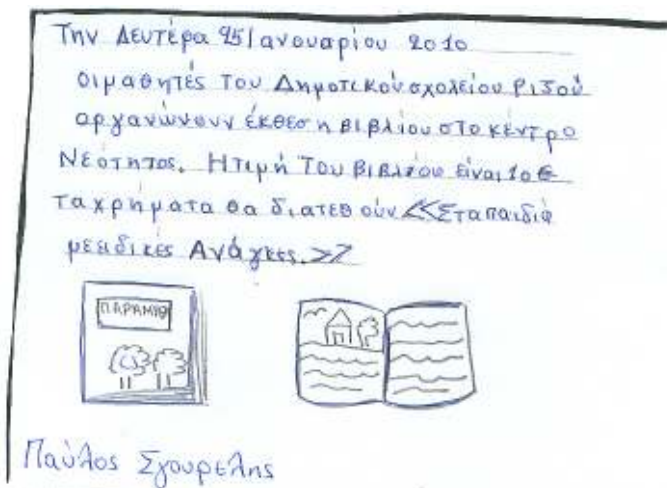 Την Δευτέρα 25Ιανουαρίου 2010
οιμαθητές του Δημοτικούσχολείου Ριζού
οργανώνουν έκθεση βιβλίου στο κέντρο
Νεότητος. Ητιμή Του βιβλίου είναι 10€
Ταχρήματα θα διατεθούν <<Σταπαιδιά
μεειδικές Ανάγκες.>>
ΠΑΡΑΜΥΘ
Παύλος Σγουρελης